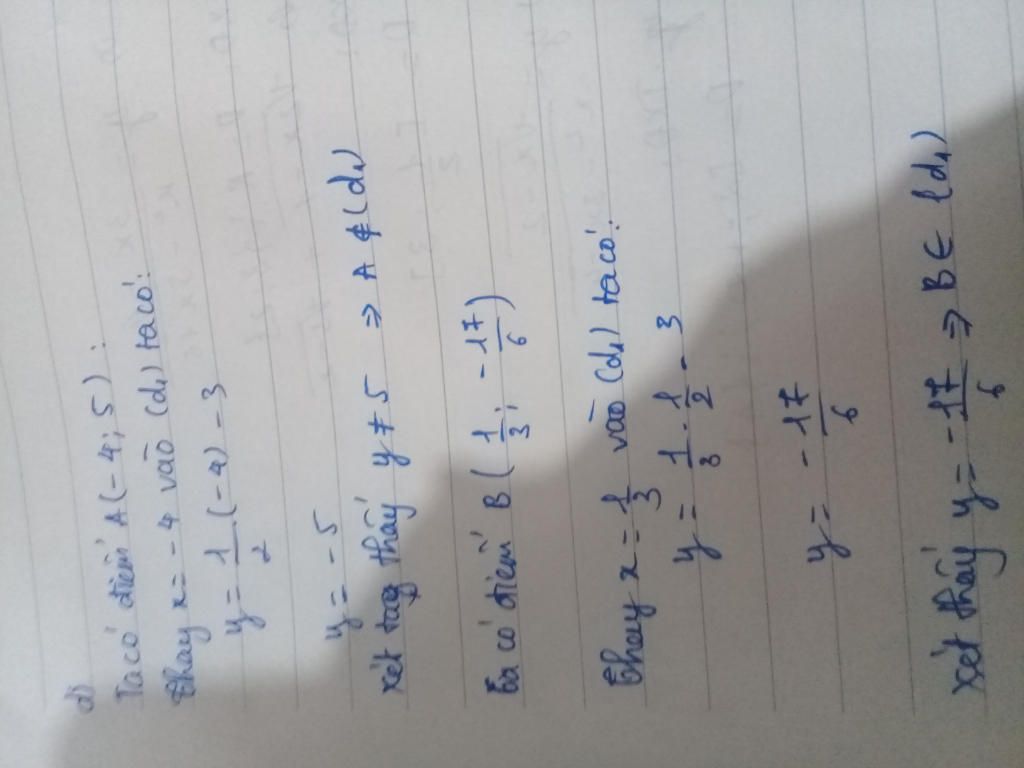 a)
Ta có điểm A(-4; 5):
Thay x = -4 vào (d₁) ta có:
y = 1/2 (-4) - 3
y = -5
xét tag thấy y ≠ 5 ⇒ A ∉ (d₁)
Ta có điểm B (1/3; -17/6)
Thay x = 1/3 vào (d₁) ta có:
y = 1/3 · 1/2 - 3
y = -17/6
xét thấy y = -17/6 ⇒ B ∈ (d₁)